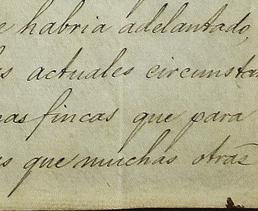 e habria adelantado,
s actuales circunstan
as fincas que para
s que muchas otras